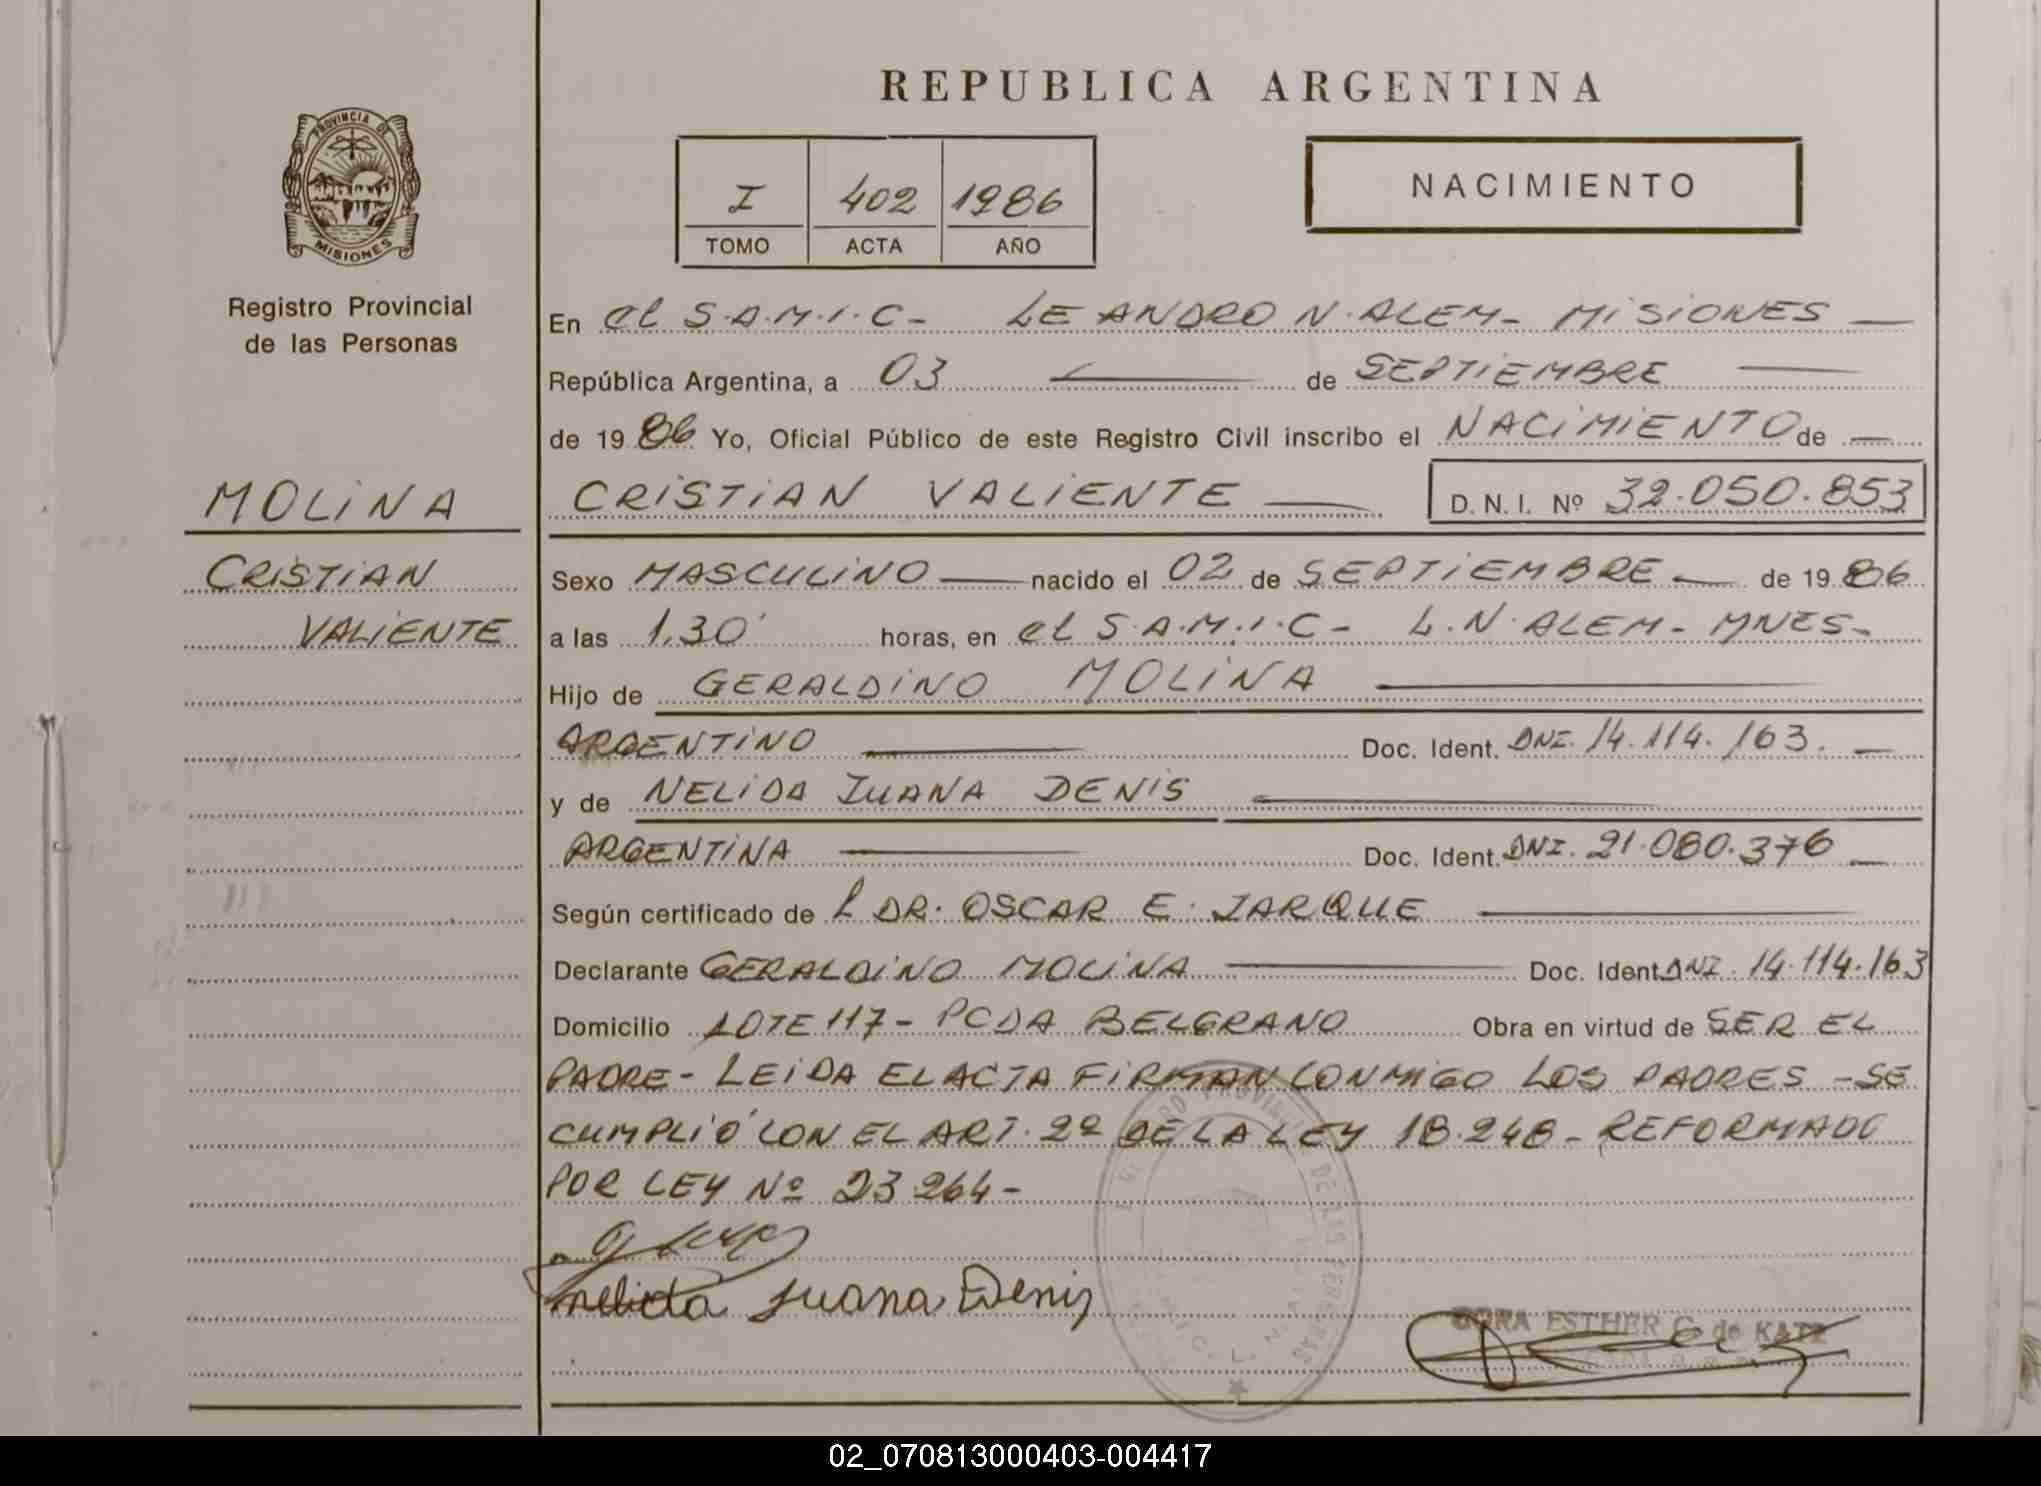 REPUBLICA ARGENTINA
PROVINCIA DE
MISIONES
Registro Provincial
de las Personas
I 402 1986
TOMO ACTA AÑO
NACIMIENTO
En el S.A.M.I.C- LEANDRO N. ALEM- MISIONES
República Argentina, a 03 de SEPTIEMBRE
de 1986 Yo, Oficial Público de este Registro Civil inscribo el NACIMIENTO de
MOLINA
CRISTIAN VALIENTE
D. N. I. Nº 32.050.853
CRISTIAN
VALIENTE
Sexo MASCULINO nacido el 02 de SEPTIEMBRE de 1986
a las 1.30' horas, en el S.A.M.I.C- L.N. ALEM- MNES-
Hijo de GERALDINO MOLINA
ARGENTINO Doc. Ident. DNI. 14.114.163.
y de NELIDA JUANA DENIS
ARGENTINA Doc. Ident. DNI. 21.080.376
Según certificado de l DR. OSCAR E. JARQUE
Declarante GERALDINO MOLINA Doc. Ident. DNI. 14.114.163
Domicilio LOTE 117- PCDA BELGRANO Obra en virtud de SER EL
PADRE- LEIDA EL ACTA FIRMAN CONMIGO LOS PADRES -SE
CUMPLIÓ CON EL ART. 2º DE LA LEY 18.248- REFORMADO
POR LEY Nº 23.264-
Nelida Juana Denis
DORA ESTHER G. de KATZ
02_070813000403-004417